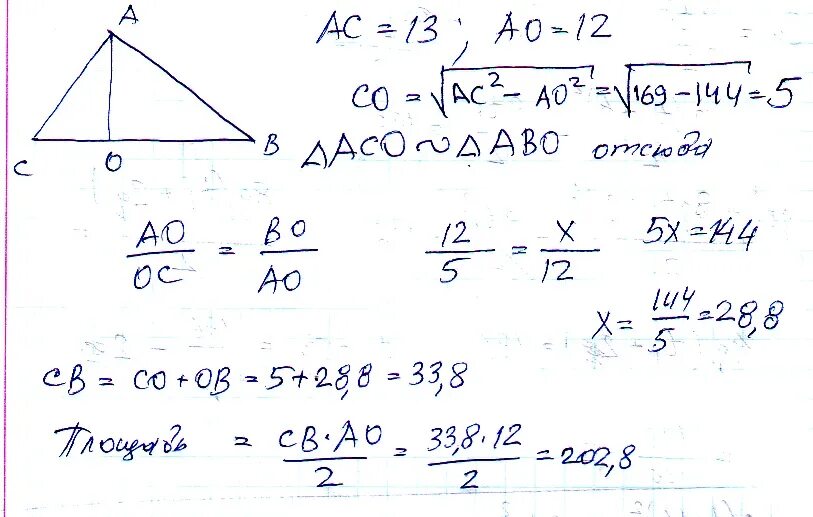 A
C O B
AC = 13 ; AO = 12
CO = √AC² - AO² = √169 - 144 = 5
△ACO ~ △ABO отсюда
AO/OC = BO/AO 12/5 = x/12 5x = 144
x = 144/5 = 28,8
CB = CO + OB = 5 + 28,8 = 33,8
Площадь = CB·AO/2 = 33,8·12/2 = 202,8